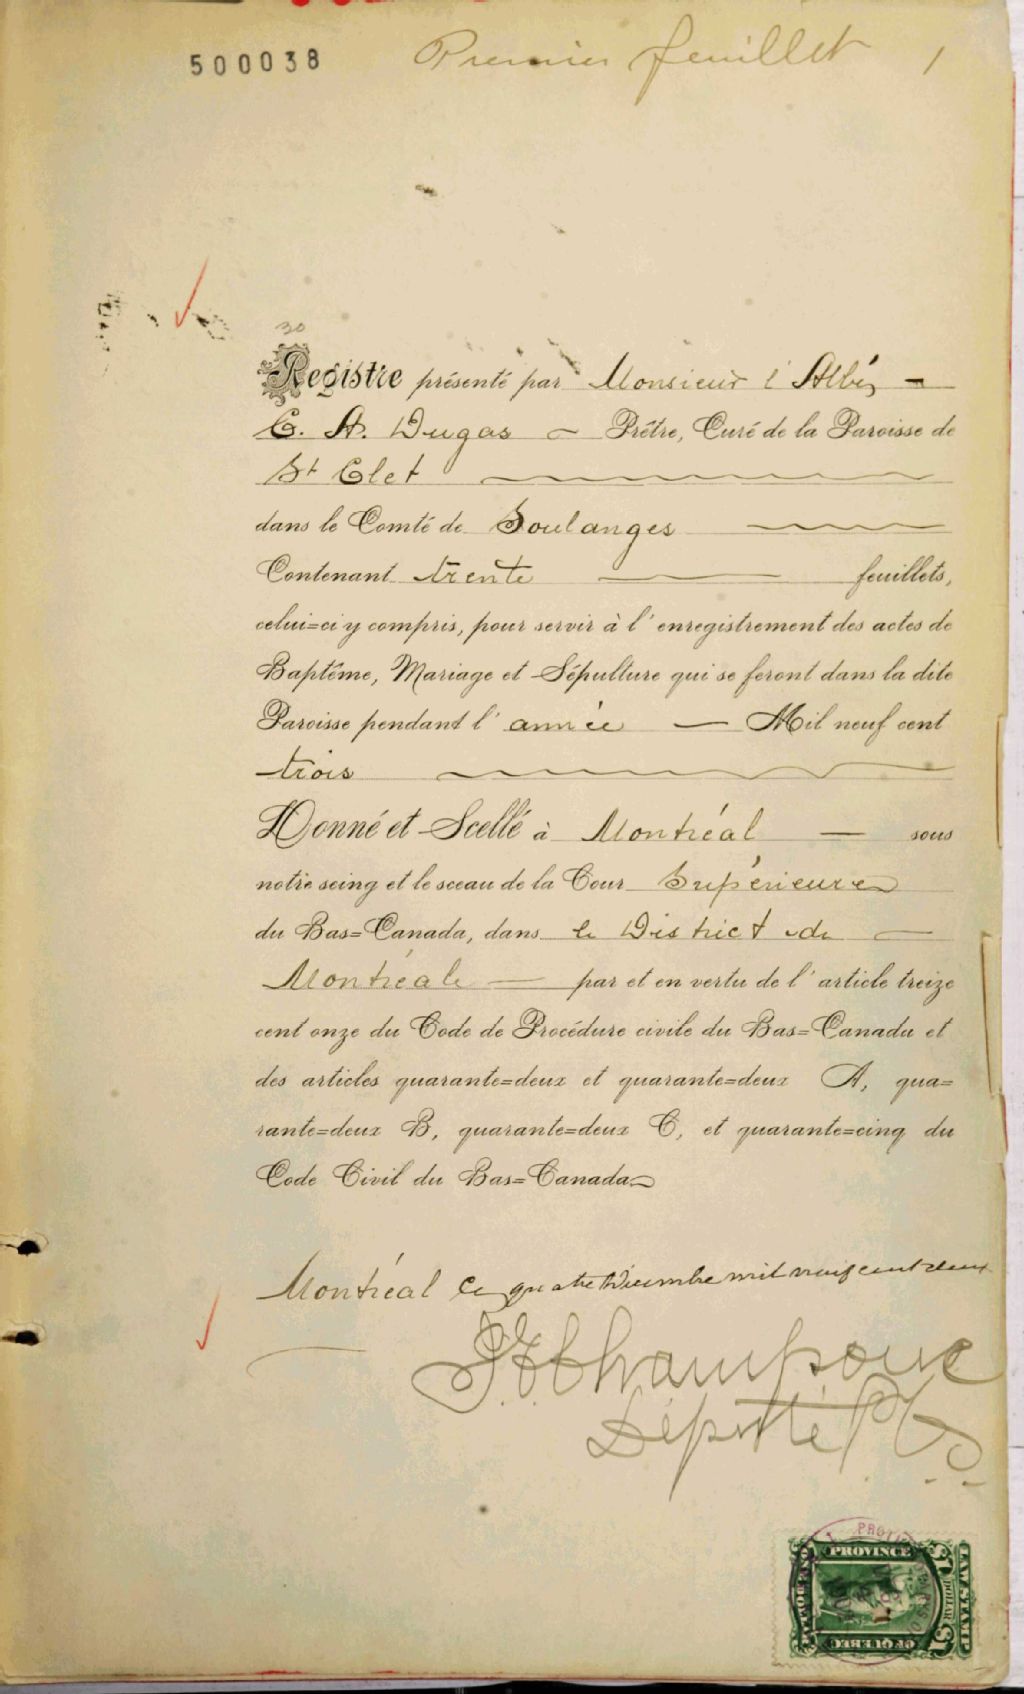 500038 Premier feuillet 1
30
Registre présenté par Monsieur l'Abbé
C. A. Dugas Prêtre, Curé de la Paroisse de
St Clet
dans le Comté de Soulanges
Contenant trente feuillets,
celui=ci y compris, pour servir à l'enregistrement des actes de
Baptême, Mariage et Sépulture qui se feront dans la dite
Paroisse pendant l'année Mil neuf cent
trois
Donné et Scellé à Montréal sous
notre seing et le sceau de la Cour Supérieure
du Bas=Canada, dans le District de
Montréal par et en vertu de l'article treize
cent onze du Code de Procédure civile du Bas=Canada et
des articles quarante=deux et quarante=deux A, qua=
rante=deux B, quarante=deux C, et quarante=cinq du
Code Civil du Bas=Canada
Montréal ce quatre Décembre mil neuf cent deux
Champoux
Député P.C.S.
PROVINCE
OF QUEBEC
LAW STAMP
$1 DOLLAR $1